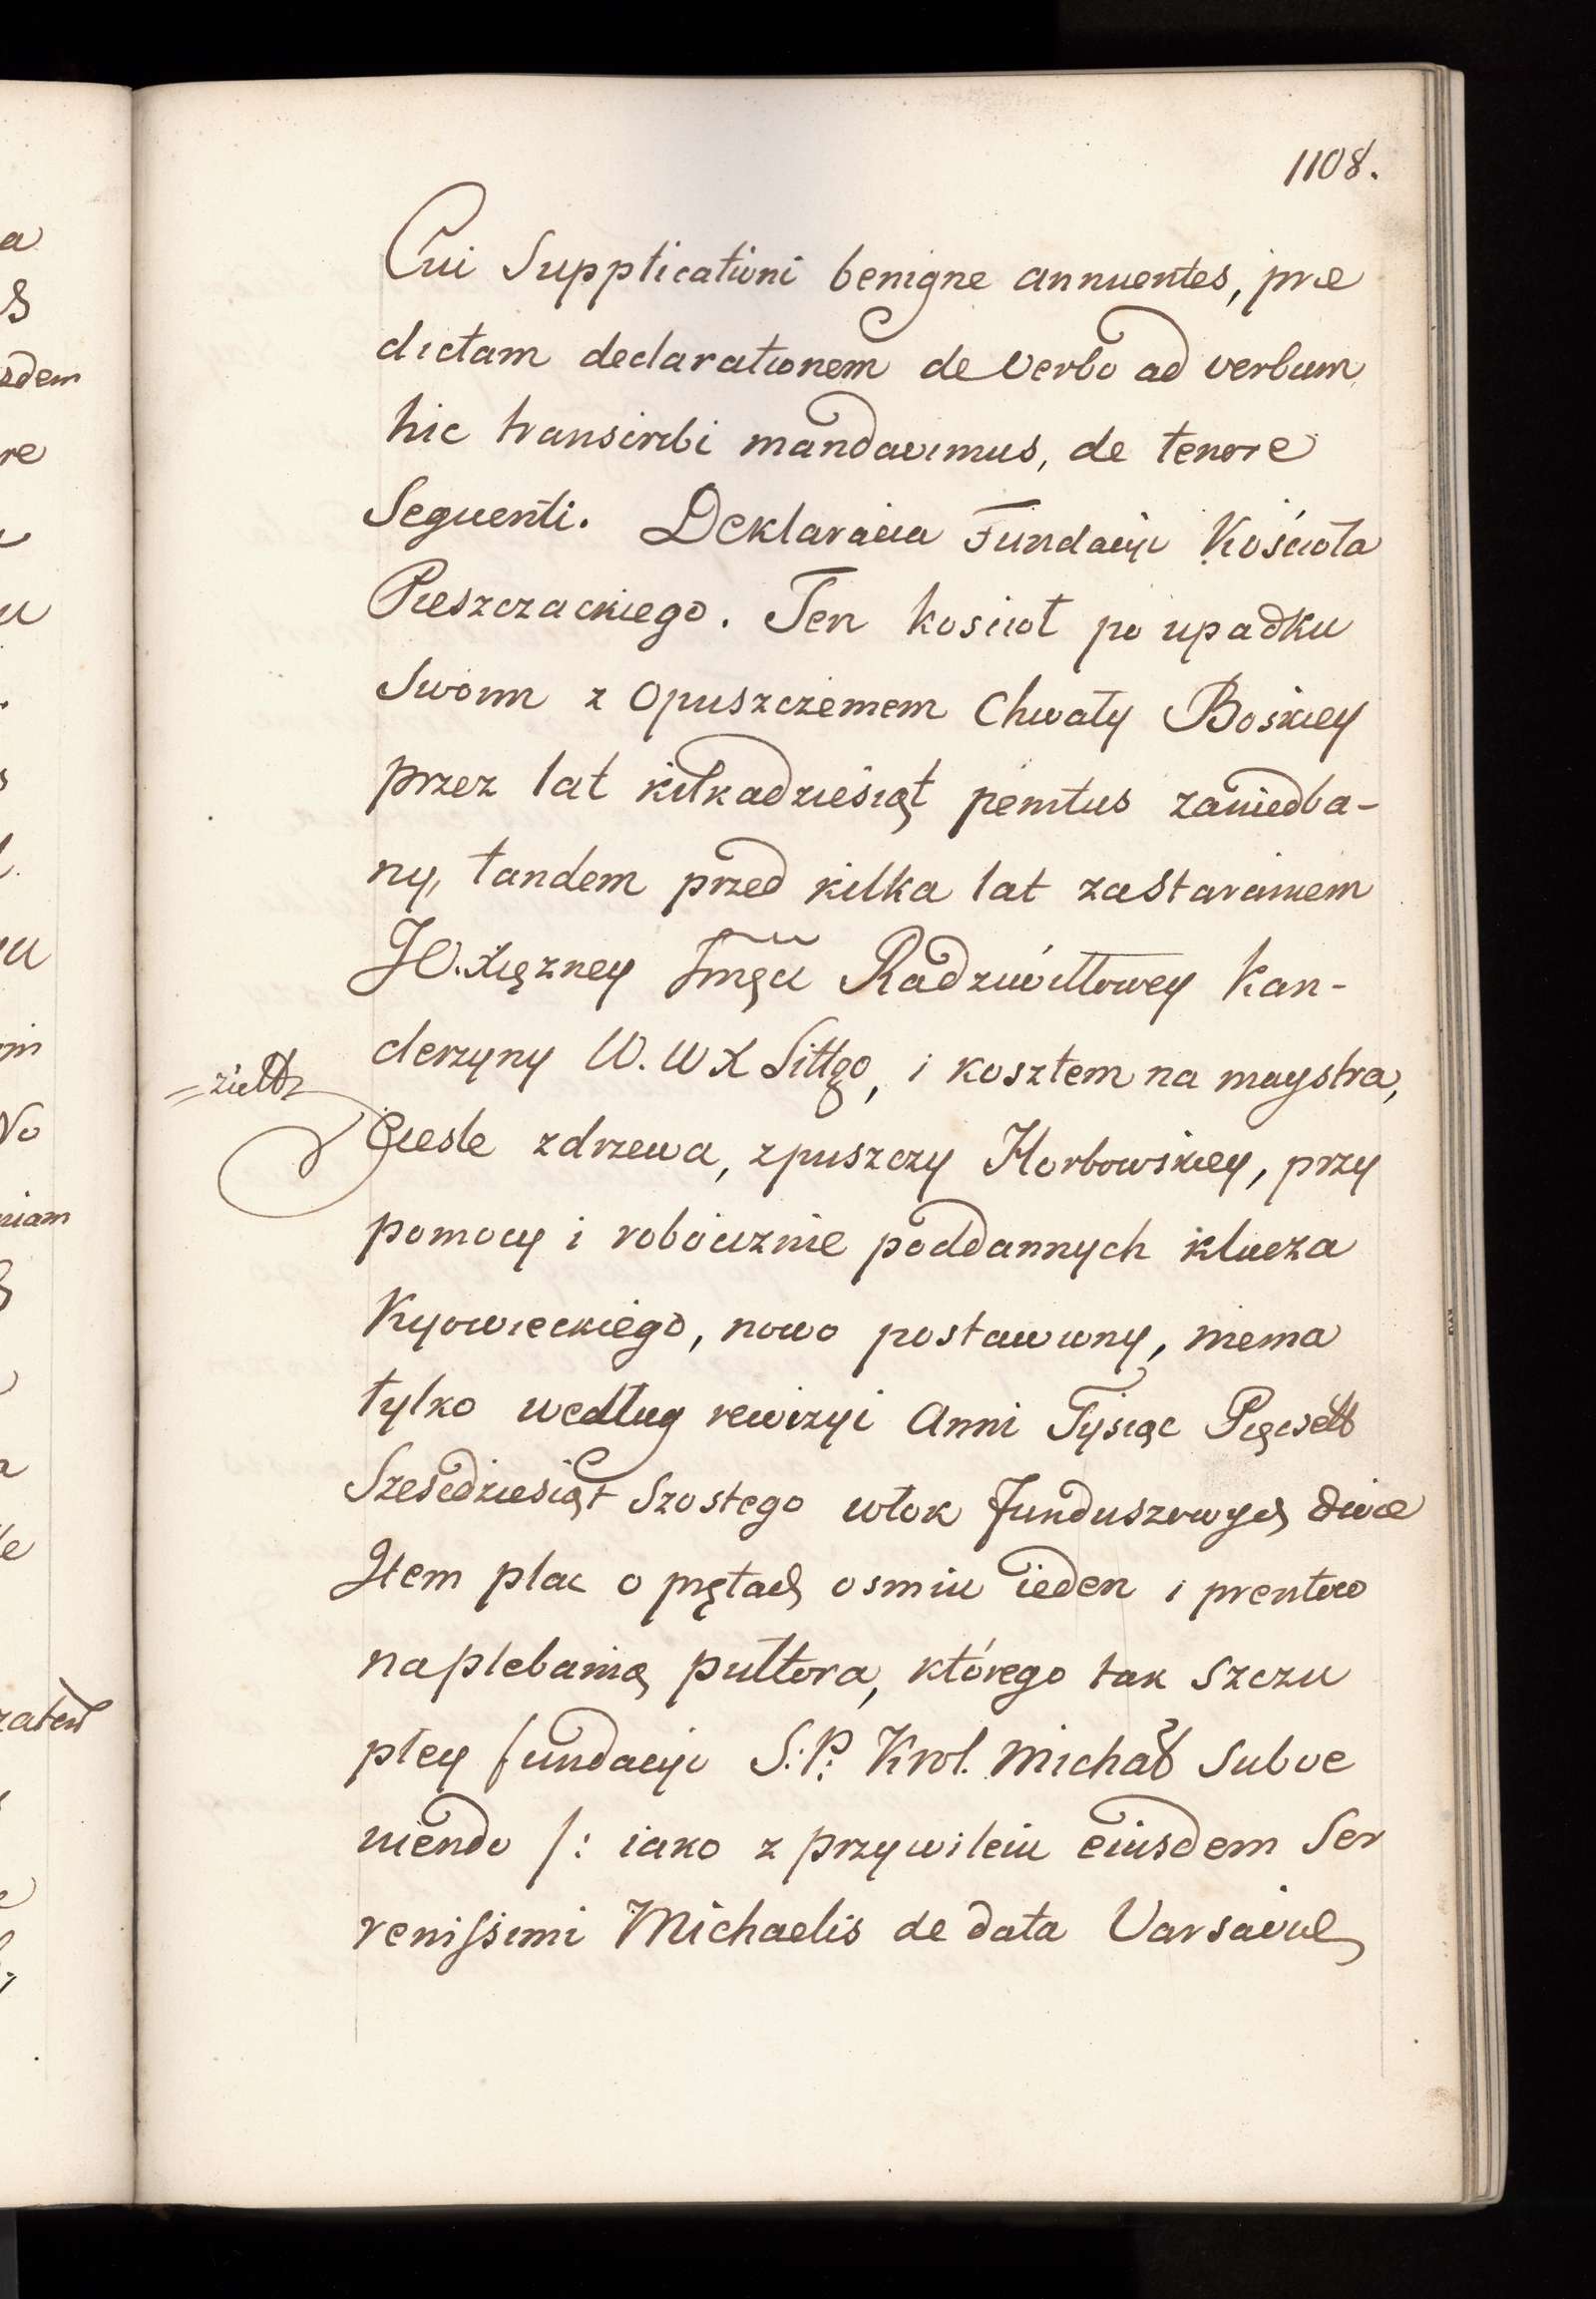 1108.
Cui Supplicationi benigne annuentes, præ
dictam declarationem de verbo ad verbum
hic transcribi mandavimus, de tenore
Sequenti. Deklaracia Fundacyi Kościoła
Pieszczackiego. Ten koscioł po upadku
Swoim z opuszczeniem Chwały Boskiey
przez lat kilkadziesiąt penitus zaniedba-
ny, tandem przed kilka lat zastaraniem
JO. Xiężney Jmęci Radziwiłłowey Kan-
clerzyny W. W X Littgo, i kosztem na maystra,
Ciesle zdrzewa, zpuszczy Horbowskiey, przy
pomocy i robociznie poddannych klucza
Kyowieckiego, nowo postawiony, niema
tylko według rewizyi Anni Tysiąc Pięcset
Szescdziesiąt Szostego włok funduszowych dwie
Item plac o prętach osmiu ieden i prentow
naplebanią pułtora, którego tak szczu
płey fundacyi S: P: Krol. Michał Subve
niendo /: iako z przywileiu eiusdem Ser
renissimi Michaelis de data Varsaviæ
a
zdem
re
u
No
niam